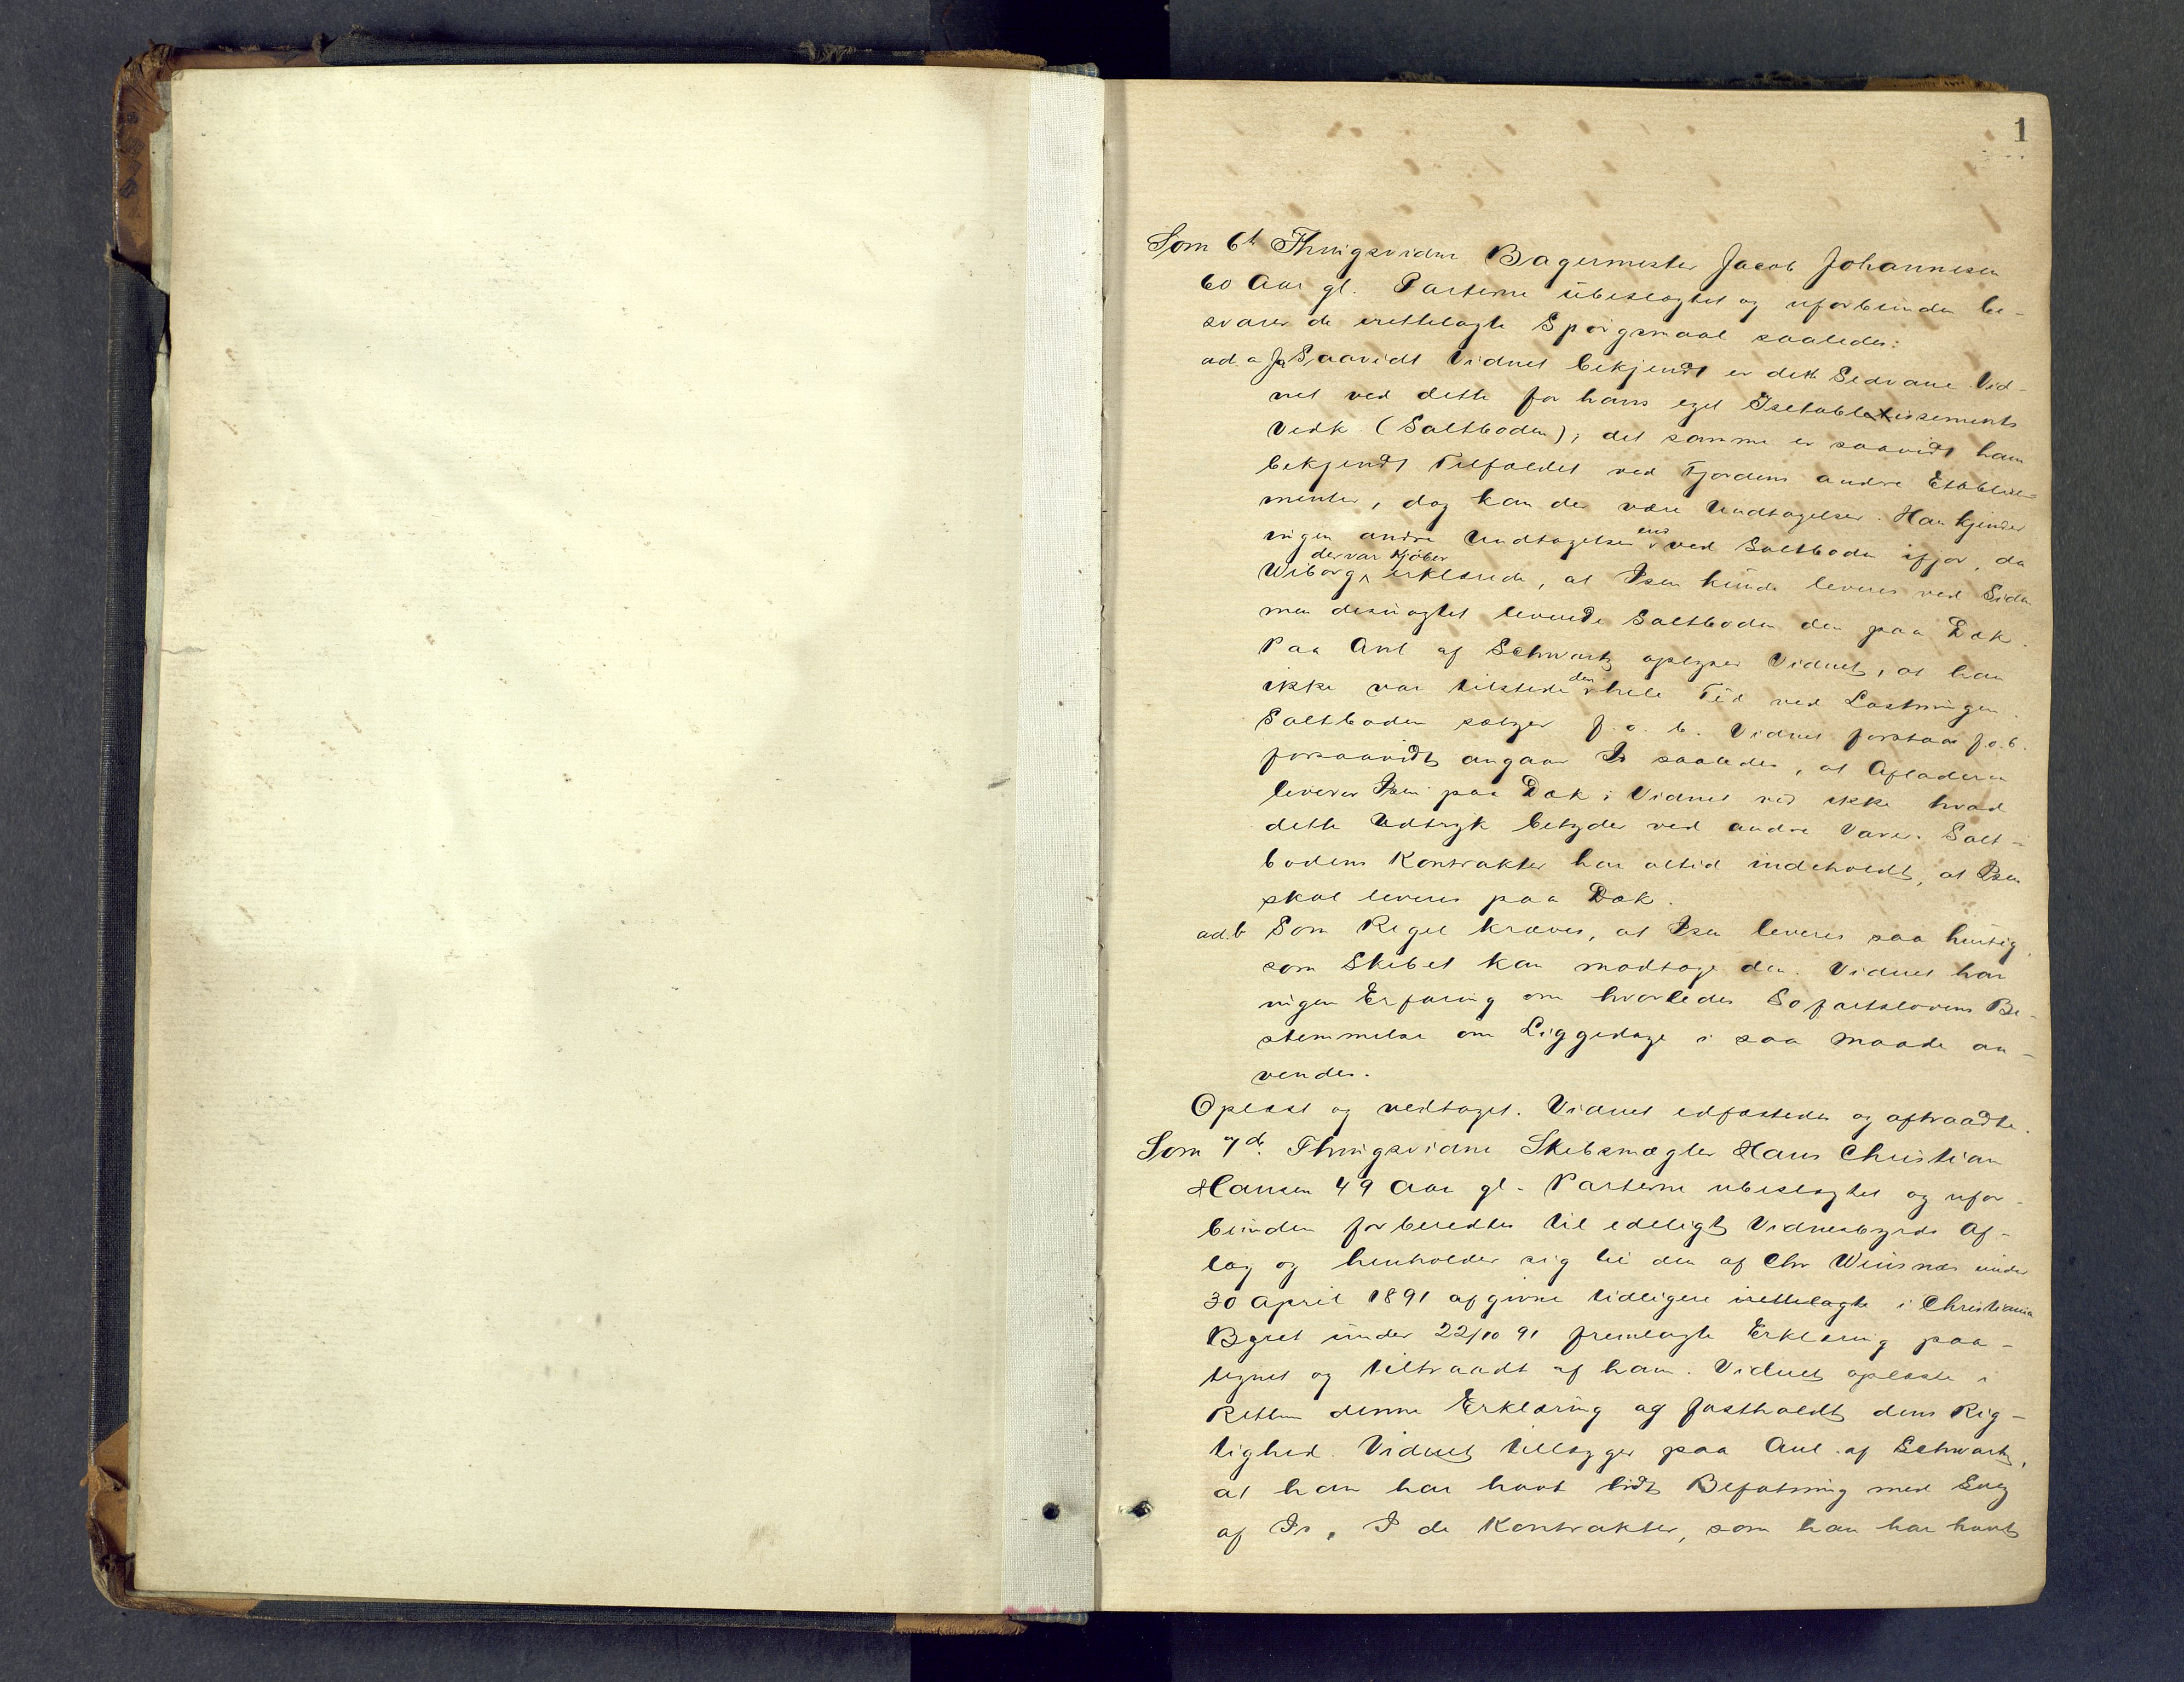 1
Som 6t Thingsvidne Bagermester Jacob Johannesen
60 Aar gl. Parterne ubeslægtet og uforbunden be-
svarer de irettelagte Spörgsmaal saaledes:
ad a Ja Saavidt Vidnet bekjendt er dette Sedvane. Vid-
net ved dette for hans eget Isetablissements
Vedk (Saltboden); det samme er saavidt ham
bekjendt Tilfældet ved Fjordens andre Etablisse-
menter, dog kan der være Undtagelser. Han kjender
ingen andre Undtagelser end ved Saltboden ifjor, da
Wiborg, der var Kjöber erklærede, at Isen kunde leveres ved Siden
men desuagtet leverede Saltboden den paa Dæk.
Paa Anl af Schwartz oplyser Vidnet, at han
ikke var tilstede den hele Tid ved Lastningen.
Saltboden sælger f. o. b. Vidnet forstaar f.o.b.
forsaavidt angaar Is saaledes, at Afladeren
leverer Isen paa Dæk; Vidnet ved ikke hvad
dette Udtryk betyder ved andre Varer. Salt-
bodens Kontrakter har altid indeholdt, at Isen
skal leveres paa Dæk.
ad. b Som Regel kræves, at Isen leveres saa hurtig
som Skibet kan modtage den. Vidnet har
ingen Erfaring om hvorledes Söfartslovens Be-
stemmelse om Liggedage i saa Maade an-
vendes.
Oplæst og vedtaget. Vidnet edfæstedes og aftraadte.
Som 7de. Thingsvidne Skibsmægler Hans Christian
Hansen 49 Aar gl. Parterne ubeslægtet og ufor-
bunden forberedtes til edeligt Vidnesbyrds Af-
læg og henholder sig til den af Chr Wiisnæs under
30 April 1891 afgivne tidligere irettelagte i Christiania
Byret under 22/10 91 fremlagte Erklæring paa-
tegnet og tiltraadt af ham. Vidnet oplæste i
Retten denne Erklæring og fastholdt dens Rig-
tighed. Vidnet tillægger paa Anl. af Schwartz,
at han har havt lidt Befatning med Salg
af Is. I de Kontrakter, som han har havt